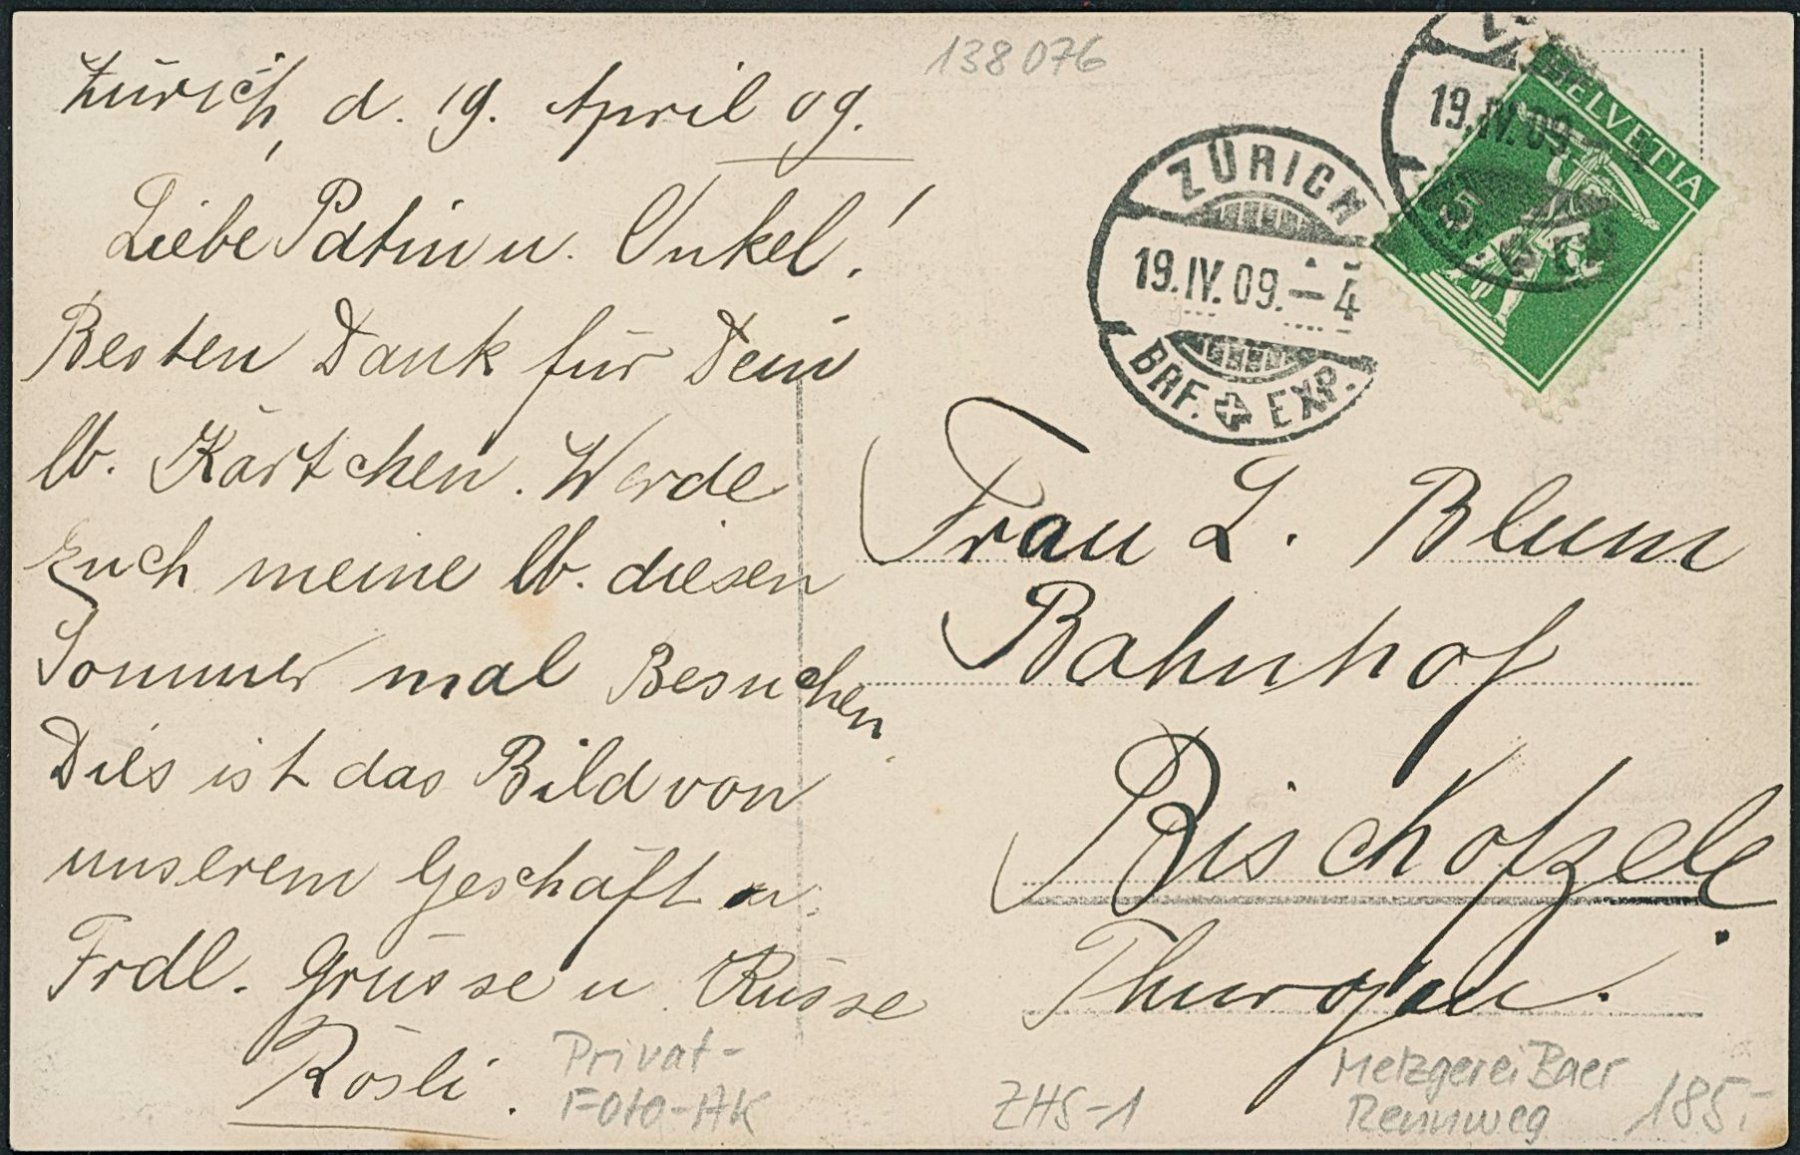 138076
Zürich, d. 19. April 09.
Liebe Patin u. Onkel!
Besten Dank für Dein
lb. Kärtchen. Werde
Euch meine lb. diesen
Sommer mal Besuchen
Dies ist das Bild von
unserem Geschäft u.
Frdl. Grüsse u Küsse
Rösli.
HELVETIA
5
19.IV.09
ZÜRICH
19.IV.09.–4
BRF. EXP.
Frau L. Blum
Bahnhof
Bischofzell
Thurgau.
Privat-
Foto-AK
ZHS-1
Metzgerei Baer
Rennweg
185.-